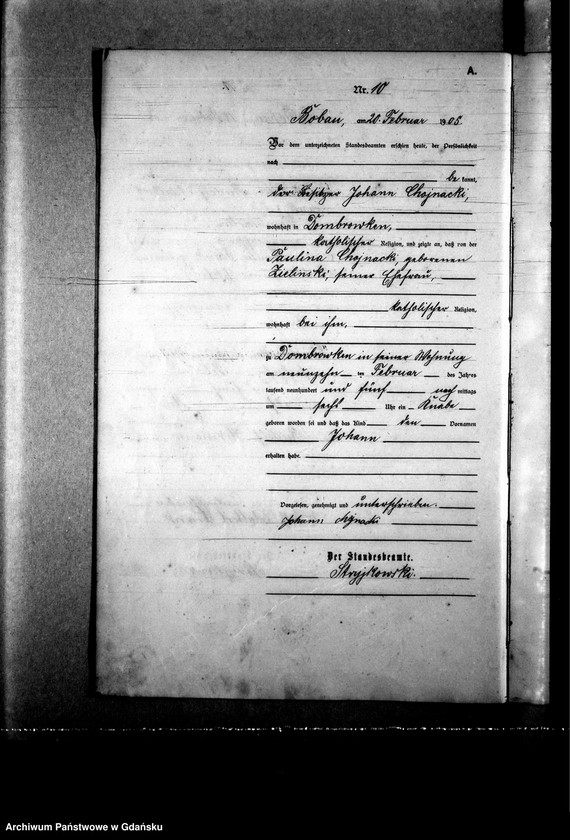 A.
Nr. 10
Bobau, am 20. Februar 1905.
Vor dem unterzeichneten Standesbeamten erschien heute, der Persönlichkeit
nach
be kannt,
der Besitzer Johann Chojnacki,
wohnhaft in Dombrowken,
katholischer Religion, und zeigte an, daß von der
Paulina Chojnacki, geborenen
Zielinski, seiner Ehefrau,
katholischer Religion,
wohnhaft bei ihm,
zu Dombrowken in seiner Wohnung
am neunzehn ten Februar des Jahres
tausend neunhundert und fünf nach mittags
um sechs Uhr ein Knabe
geboren worden sei und daß das Kind den Vornamen
Johann
erhalten habe.
Vorgelesen, genehmigt und unterschrieben.
Johann
Der Standesbeamte.
Stryjkowski.
Archiwum Państwowe w Gdańsku